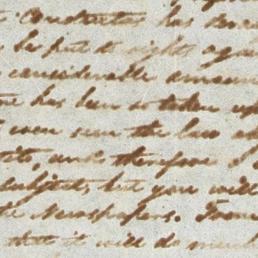 Constructus has
be put to rights again
considerable amount
has been so taken up
even seen the law
and therefore I
subject, but you will
the Newspapers. From
that it will do much